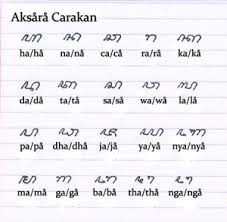 Aksårå Carakan
ꦲ ꦤ ꦕ ꦫ ꦏ
ha/hå na/nå ca/cå ra/rå ka/kå
ꦢ ꦠ ꦱ ꦮ ꦭ
da/då ta/tå sa/så wa/wå la/lå
ꦥ ꦝ ꦗ ꦪ ꦚ
pa/på dha/dhå ja/jå ya/yå nya/nyå
ꦩ ꦒ ꦧ ꦛ ꦔ
ma/må ga/gå ba/bå tha/thå nga/ngå